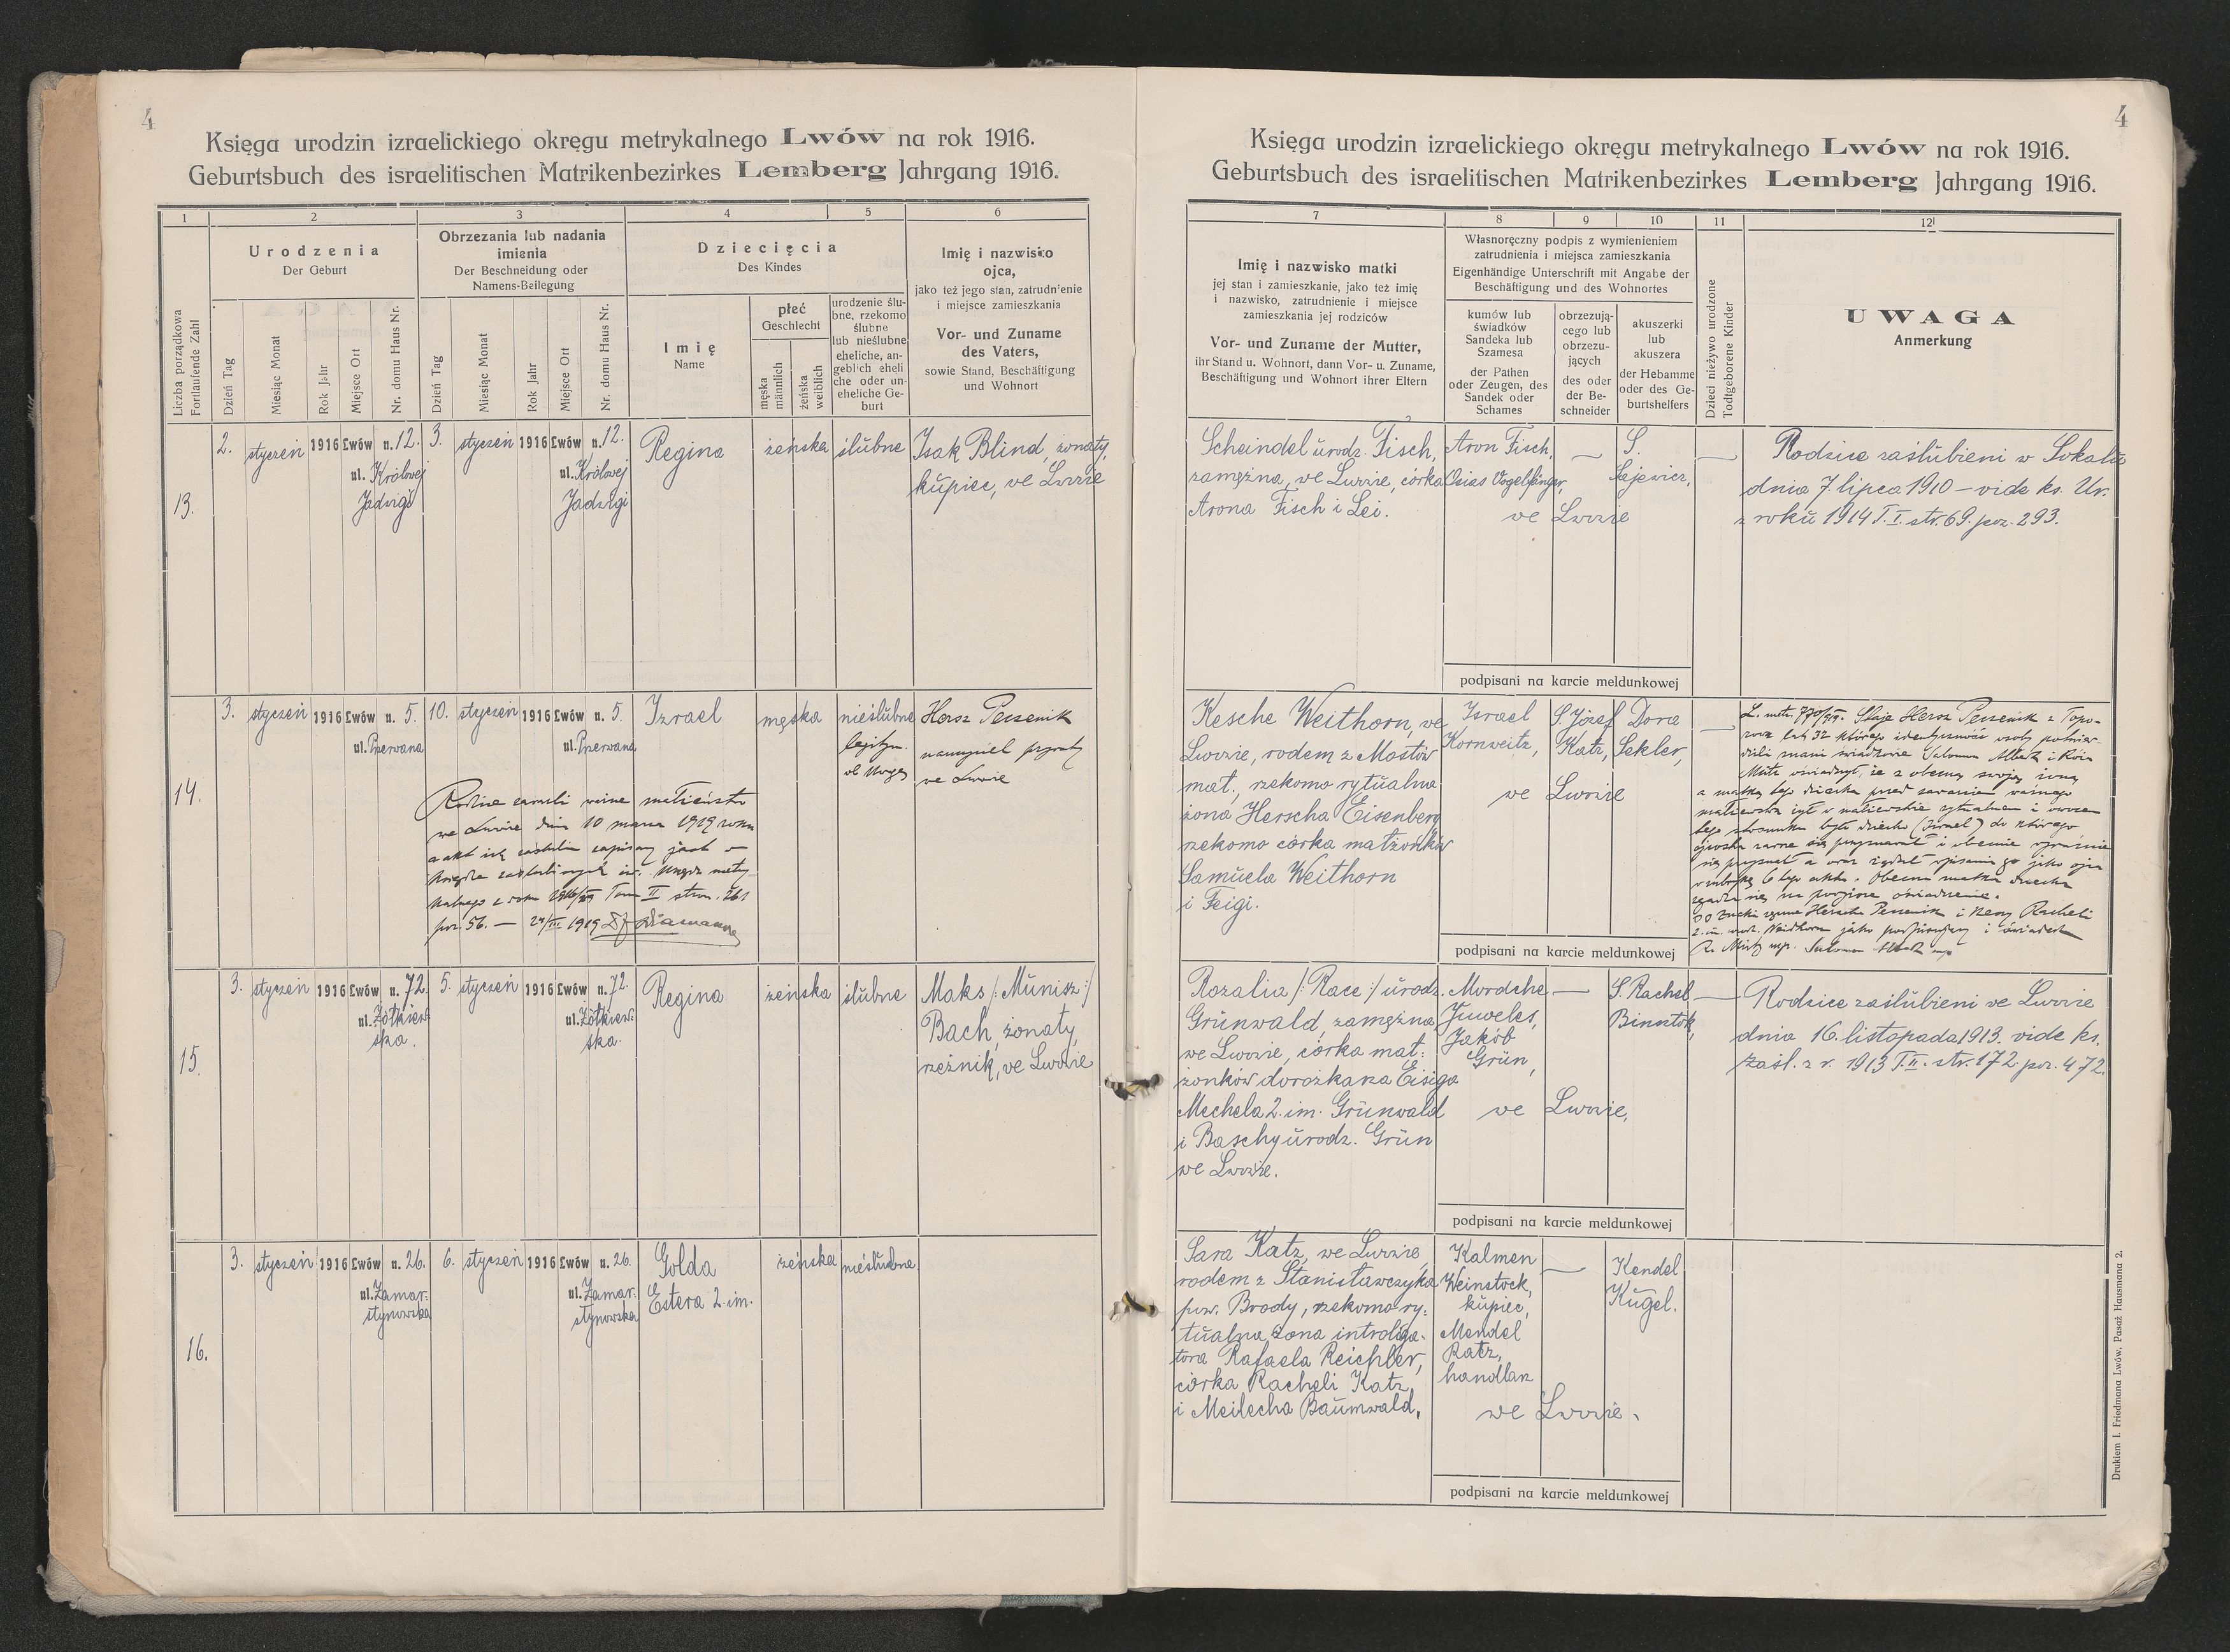 4
Księga urodzin izraelickiego okręgu metrykalnego Lwów na rok 1916.
Geburtsbuch des israelitischen Matrikenbezirkes Lemberg Jahrgang 1916.
1 2 3 4 5 6
Liczba porządkowa
Fortlaufende Zahl
Urodzenia
Der Geburt
Dzień Tag
Miesiąc Monat
Rok Jahr
Miejsce Ort
Nr. domu Haus Nr.
Obrzezania lub nadania
imienia
Der Beschneidung oder
Namens-Beilegung
Dzień Tag
Miesiąc Monat
Rok Jahr
Miejsce Ort
Nr. domu Haus Nr.
Dziecięcia
Des Kindes
Imię
Name
płeć
Geschlecht
męska
männlich
żeńska
weiblich
urodzenie ślu-
bne, rzekomo
ślubne
lub nieślubne
eheliche, an-
geblich eheli
che oder un-
eheliche Ge-
burt
Imię i nazwisko
ojca,
jako też jego stan, zatrudnienie
i miejsce zamieszkania
Vor- und Zuname
des Vaters,
sowie Stand, Beschäftigung
und Wohnort
13.
2. styczeń 1916 Lwów n. 12.
ul. Królowej
Jadwigi
3. styczeń 1916 Lwów n. 12.
ul. Królowej
Jadwigi
Regina
żeńska
ślubne
Isak Blind, żonaty,
kupiec, we Lwowie
14.
3. styczeń 1916 Lwów n. 5.
ul. Pzerwana
10. styczeń 1916 Lwów n. 5.
ul. Pzerwana
Izrael
męska
nieślubne
legitym.
Hersz
we Lwowie
we Lwowie dnia 10 marca 1919 roku
a akt ich zapisany jest w
Tom II stron. 261
poz. 56. — 1919
15.
3. styczeń 1916 Lwów n. 72.
ul. Żółkiew-
ska.
5. styczeń 1916 Lwów n. 72.
ul. Żółkiew-
ska.
Regina
żeńska
ślubne
Maks /: Munisz :/
Bach, żonaty,
rzeźnik, we Lwowie
16.
3. styczeń 1916 Lwów n. 26.
ul. Zamar-
stynowska
6. styczeń 1916 Lwów n. 26.
ul. Zamar-
stynowska
Golda
Estera 2. im.
żeńska
nieślubne
4
Księga urodzin izraelickiego okręgu metrykalnego Lwów na rok 1916.
Geburtsbuch des israelitischen Matrikenbezirkes Lemberg Jahrgang 1916.
7 8 9 10 11 12
Imię i nazwisko matki
jej stan i zamieszkanie, jako też imię
i nazwisko, zatrudnienie i miejsce
zamieszkania jej rodziców
Vor- und Zuname der Mutter,
ihr Stand u. Wohnort, dann Vor- u. Zuname,
Beschäftigung und Wohnort ihrer Eltern
Własnoręczny podpis z wymienieniem
zatrudnienia i miejsca zamieszkania
Eigenhändige Unterschrift mit Angabe der
Beschäftigung und des Wohnortes
kumów lub
świadków
Sandeka lub
Szamesa
der Pathen
oder Zeugen, des
Sandek oder
Schames
obrzezują-
cego lub
obrzezu-
jących
des oder
der Be-
schneider
akuszerki
lub
akuszera
der Hebamme
oder des Ge-
burtshelfers
Dzieci nieżywo urodzone
Todtgeborene Kinder
UWAGA
Anmerkung
Scheindel urodz. Fisch,
zamężna, we Lwowie, córka
Arona Fisch i Lei.
Aron Fisch,
Osias Vogelfänger,
—
S.
Łajewicz,
we Lwowie
—
Rodzice zaślubieni w Sokalu
dnia 7. lipca 1910 — vide ks. Ur.
z roku 1914 T. I. str. 69. poz. 293.
podpisani na karcie meldunkowej
Kesche Weithorn, we
Lwowie, rodem z Mostów
mat., rzekomo rytualna
żona Herscha Eisenberg
rzekomo córka małżonków
Samuela Weithorn
i Feigi.
Israel
Kornweitz,
S. Józef
Katz,
Dora
Sekler,
we Lwowie
Staje Hersz
lat 32 którego identyczność osoby
z obecną swoją żoną
a matką tego dziecka przed zawarciem ważnego
małżeństwa żył w małżeństwie rytualnem i owocem
tego stosunku było dziecko (Izrael) do którego
podpisani na karcie meldunkowej
Rozalia /: Race :/ urodz.
Grünwald, zamężna
we Lwowie, córka mał-
żonków dorożkarza Eisiga
Mechela 2. im. Grünwald
i Baschy urodz. Grün
we Lwowie.
Mordche
Juweles,
Jakób
Grün,
—
S. Rachel
Binstok,
we Lwowie,
—
Rodzice zaślubieni we Lwowie
dnia 16. listopada 1913. vide ks.
zaśl. z r. 1913 T. II. str. 172 poz. 472.
podpisani na karcie meldunkowej
Sara Katz, we Lwowie,
rodem z Stanisławczyka
pow. Brody, rzekomo ry-
tualna żona introliga-
tora Rafaela Reichler,
córka Racheli Katz
i Meilecha Baumwald.
Kalmen
Weinstock,
kupiec,
Mendel
Katz,
handlarz
—
Kendel
Kugel.
we Lwowie.
podpisani na karcie meldunkowej
Drukiem I. Friedmana Lwów, Pasaż Hausmana 2.